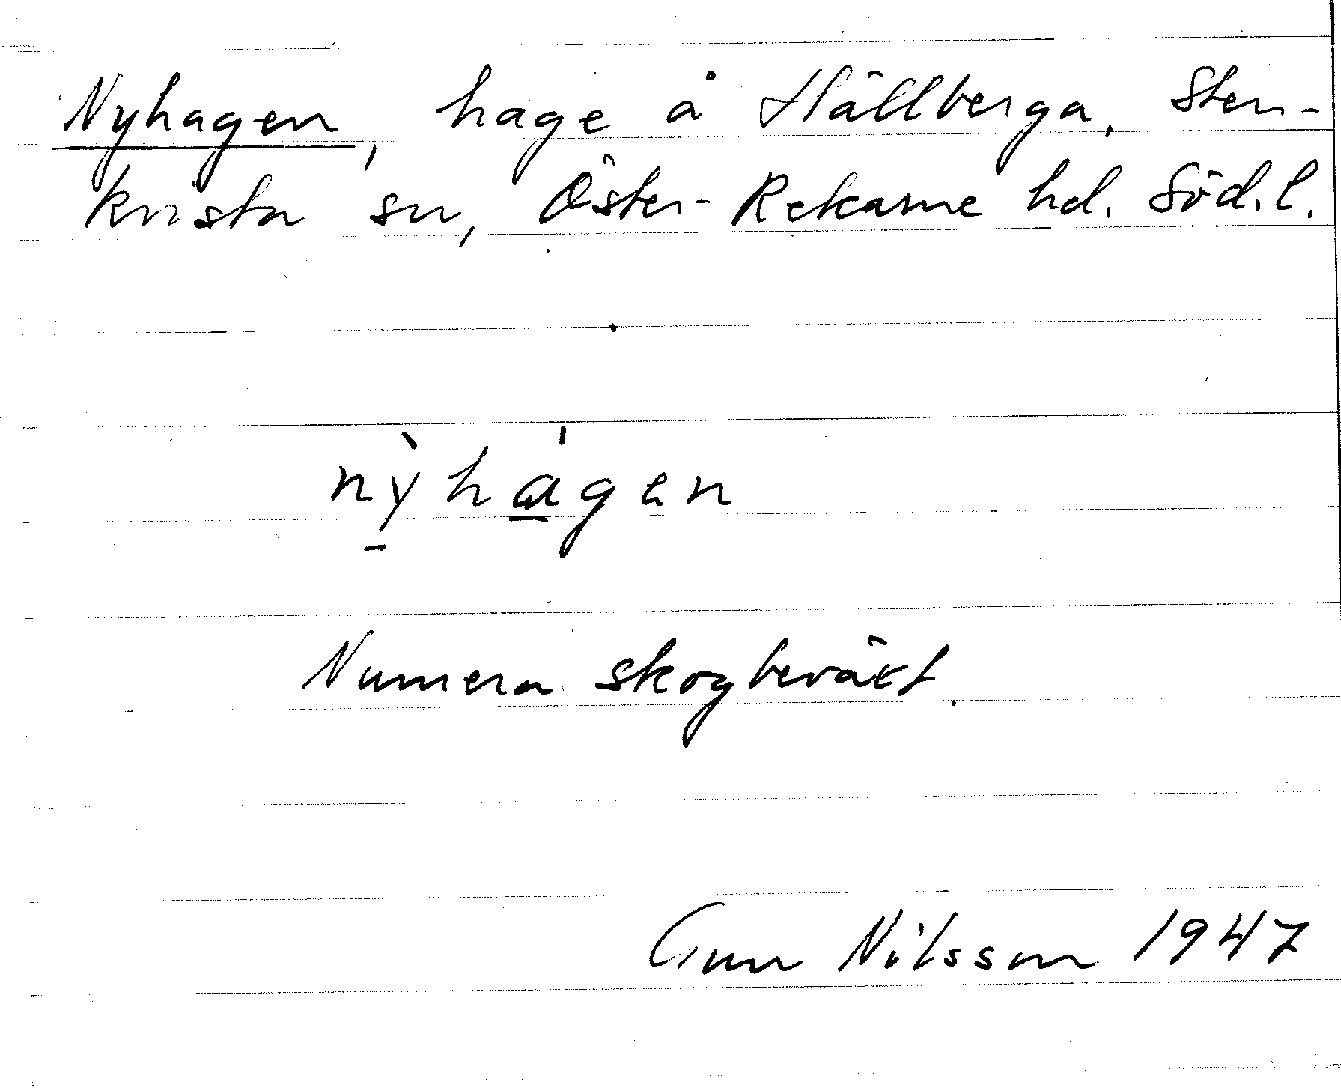 Nyhagen, hage å Hällberga, Sten-
kvista sn, Öster-Rekarne hd. Söd.l.
nỳhágen
Numera skogbeväxt.
Gun Nilsson 1947